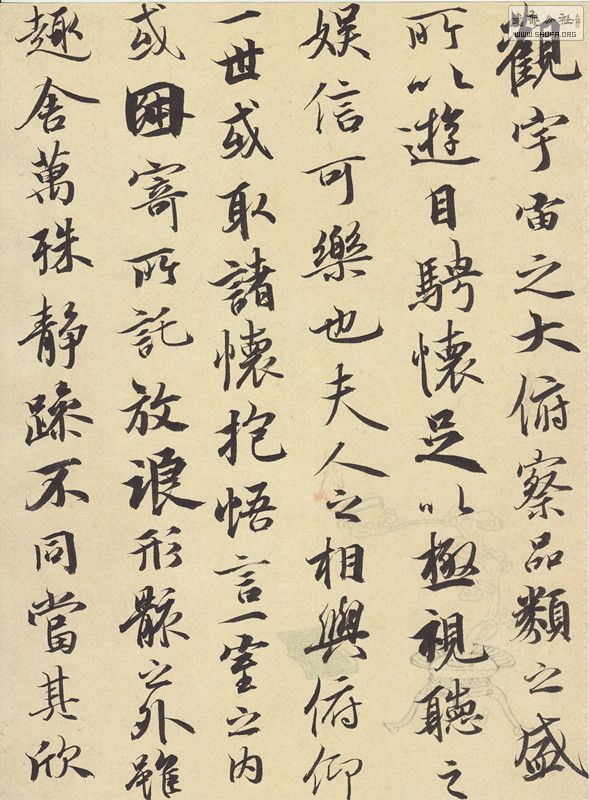 觀宇宙之大俯察品類之盛
所以遊目騁懷足以極視聽之
娛信可樂也夫人之相與俯仰
一世或取諸懷抱悟言一室之內
或因寄所託放浪形骸之外雖
趣舍萬殊靜躁不同當其欣
书法公社
WWW.SHUFA.ORG